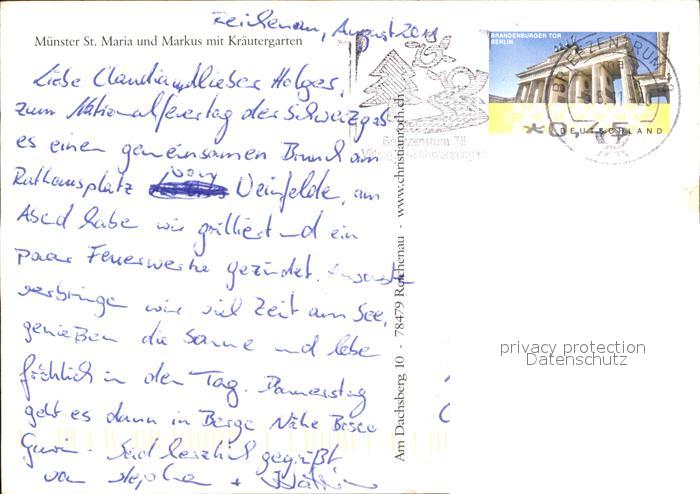 Reichenau, August 2011
Münster St. Maria und Markus mit Kräutergarten
Liebe Claudia und lieber Holger,
zum Nationalfeiertag der Schweiz gab
es einen gemeinsamen Brunch am
Rathausplatz von Weinfelde, am
Abend habe wir grilliert und ein
paar Feuerwerke gezündet.
verbringen wir viel Zeit am See,
genießen die Sonne und lebe
fröhlich in den Tag. Donnerstag
geht es dann in Berge Nähe
Seid herzlich gegrüßt
von Stepha +
Am Dachsberg 10 - 78479 Reichenau - www.christianroth.ch
BRANDENBURGER TOR
BERLIN
DEUTSCHLAND
Briefzentrum 78
Villingen-Schwenningen
BRIEFZENTRUM
privacy protection
Datenschutz